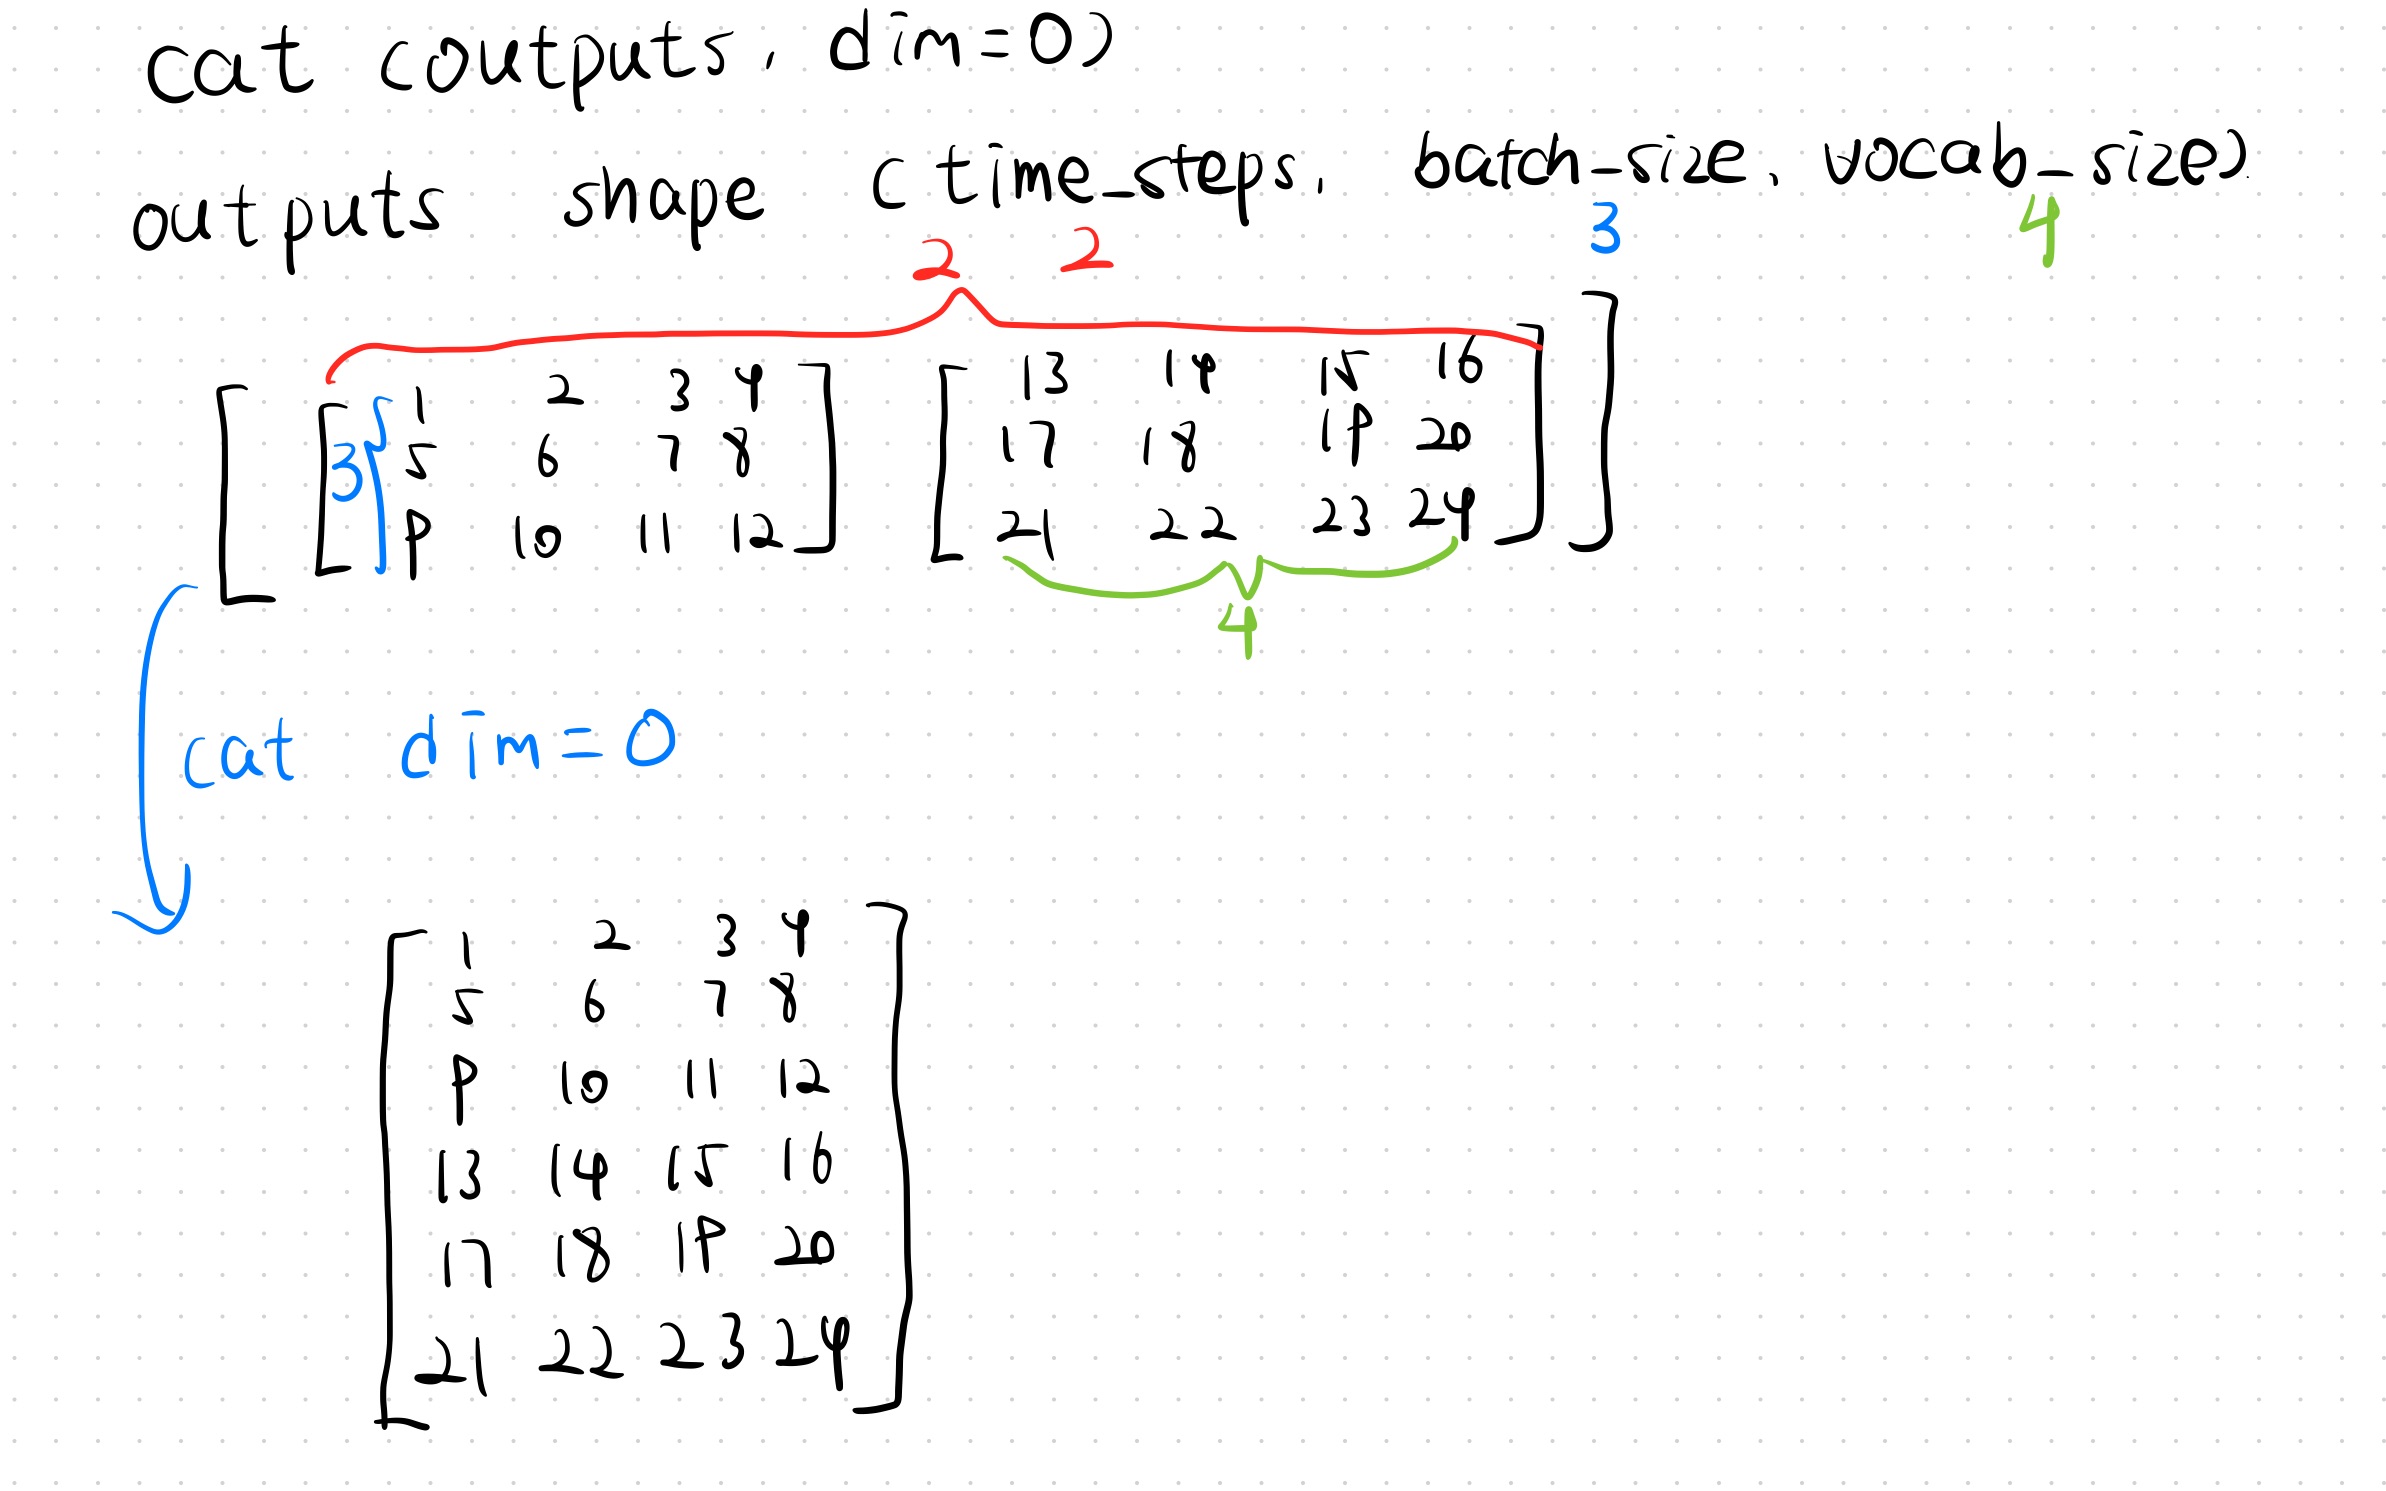 cat (outputs, dim=0)
outputs shape (time_steps, batch_size, vocab_size)
2 2 3 4
[ [ 1 2 3 4 ] [ 13 14 15 16 ] ]
3 5 6 7 8 17 18 19 20
9 10 11 12 21 22 23 24
4
cat dim=0
1 2 3 4
5 6 7 8
9 10 11 12
13 14 15 16
17 18 19 20
21 22 23 24